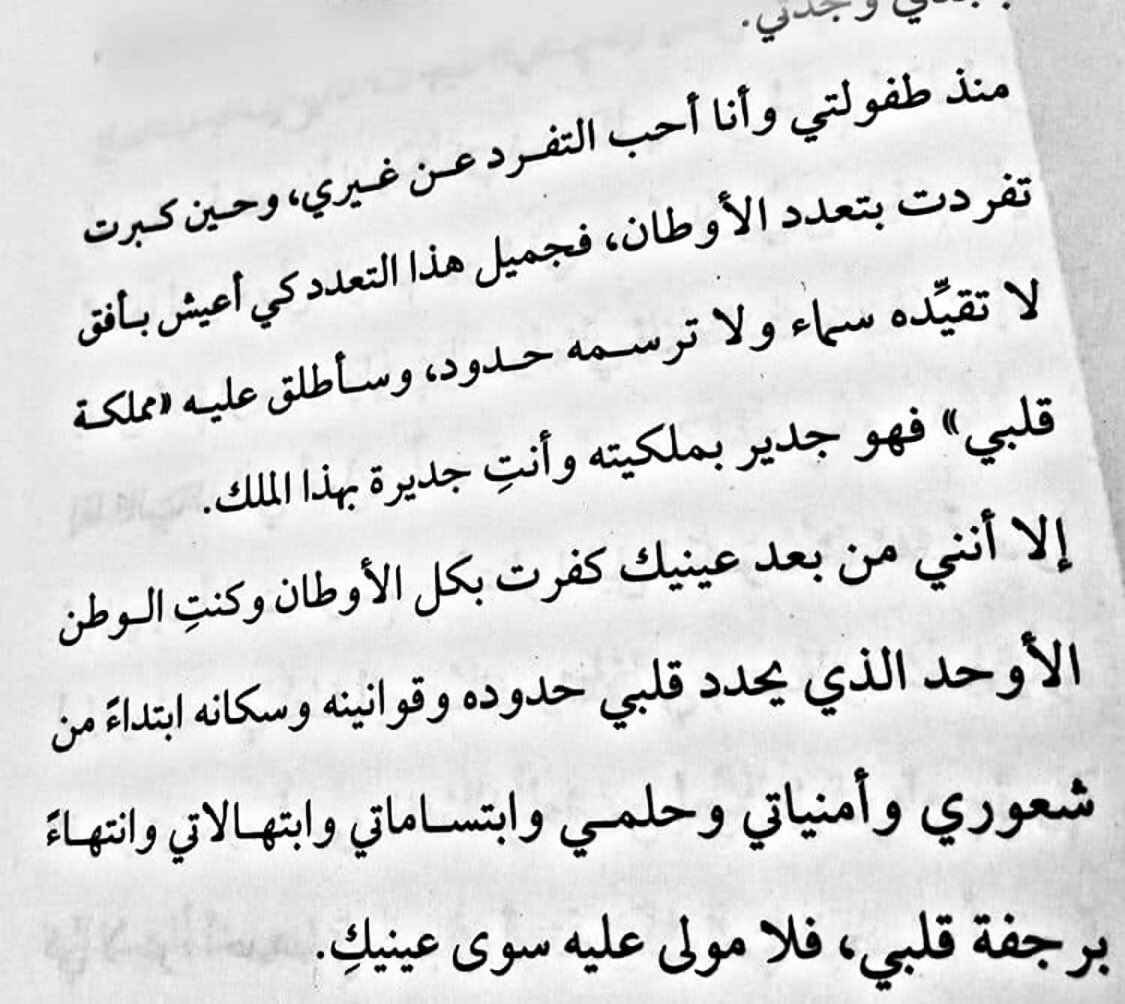 وجدتي.
منذ طفولتي وأنا أحب التفرد عن غيري، وحين كبرت
تفردت بتعدد الأوطان، فجميل هذا التعدد كي أعيش بأفق
لا تقيِّده سماء ولا ترسمه حدود، وسأطلق عليه «مملكة
قلبي» فهو جدير بملكيته وأنتِ جديرة بهذا الملك.
إلا أنني من بعد عينيك كفرت بكل الأوطان وكنتِ الوطن
الأوحد الذي يحدد قلبي حدوده وقوانينه وسكانه ابتداءً من
شعوري وأمنياتي وحلمي وابتساماتي وابتهالاتي وانتهاءً
برجفة قلبي، فلا مولى عليه سوى عينيكِ.